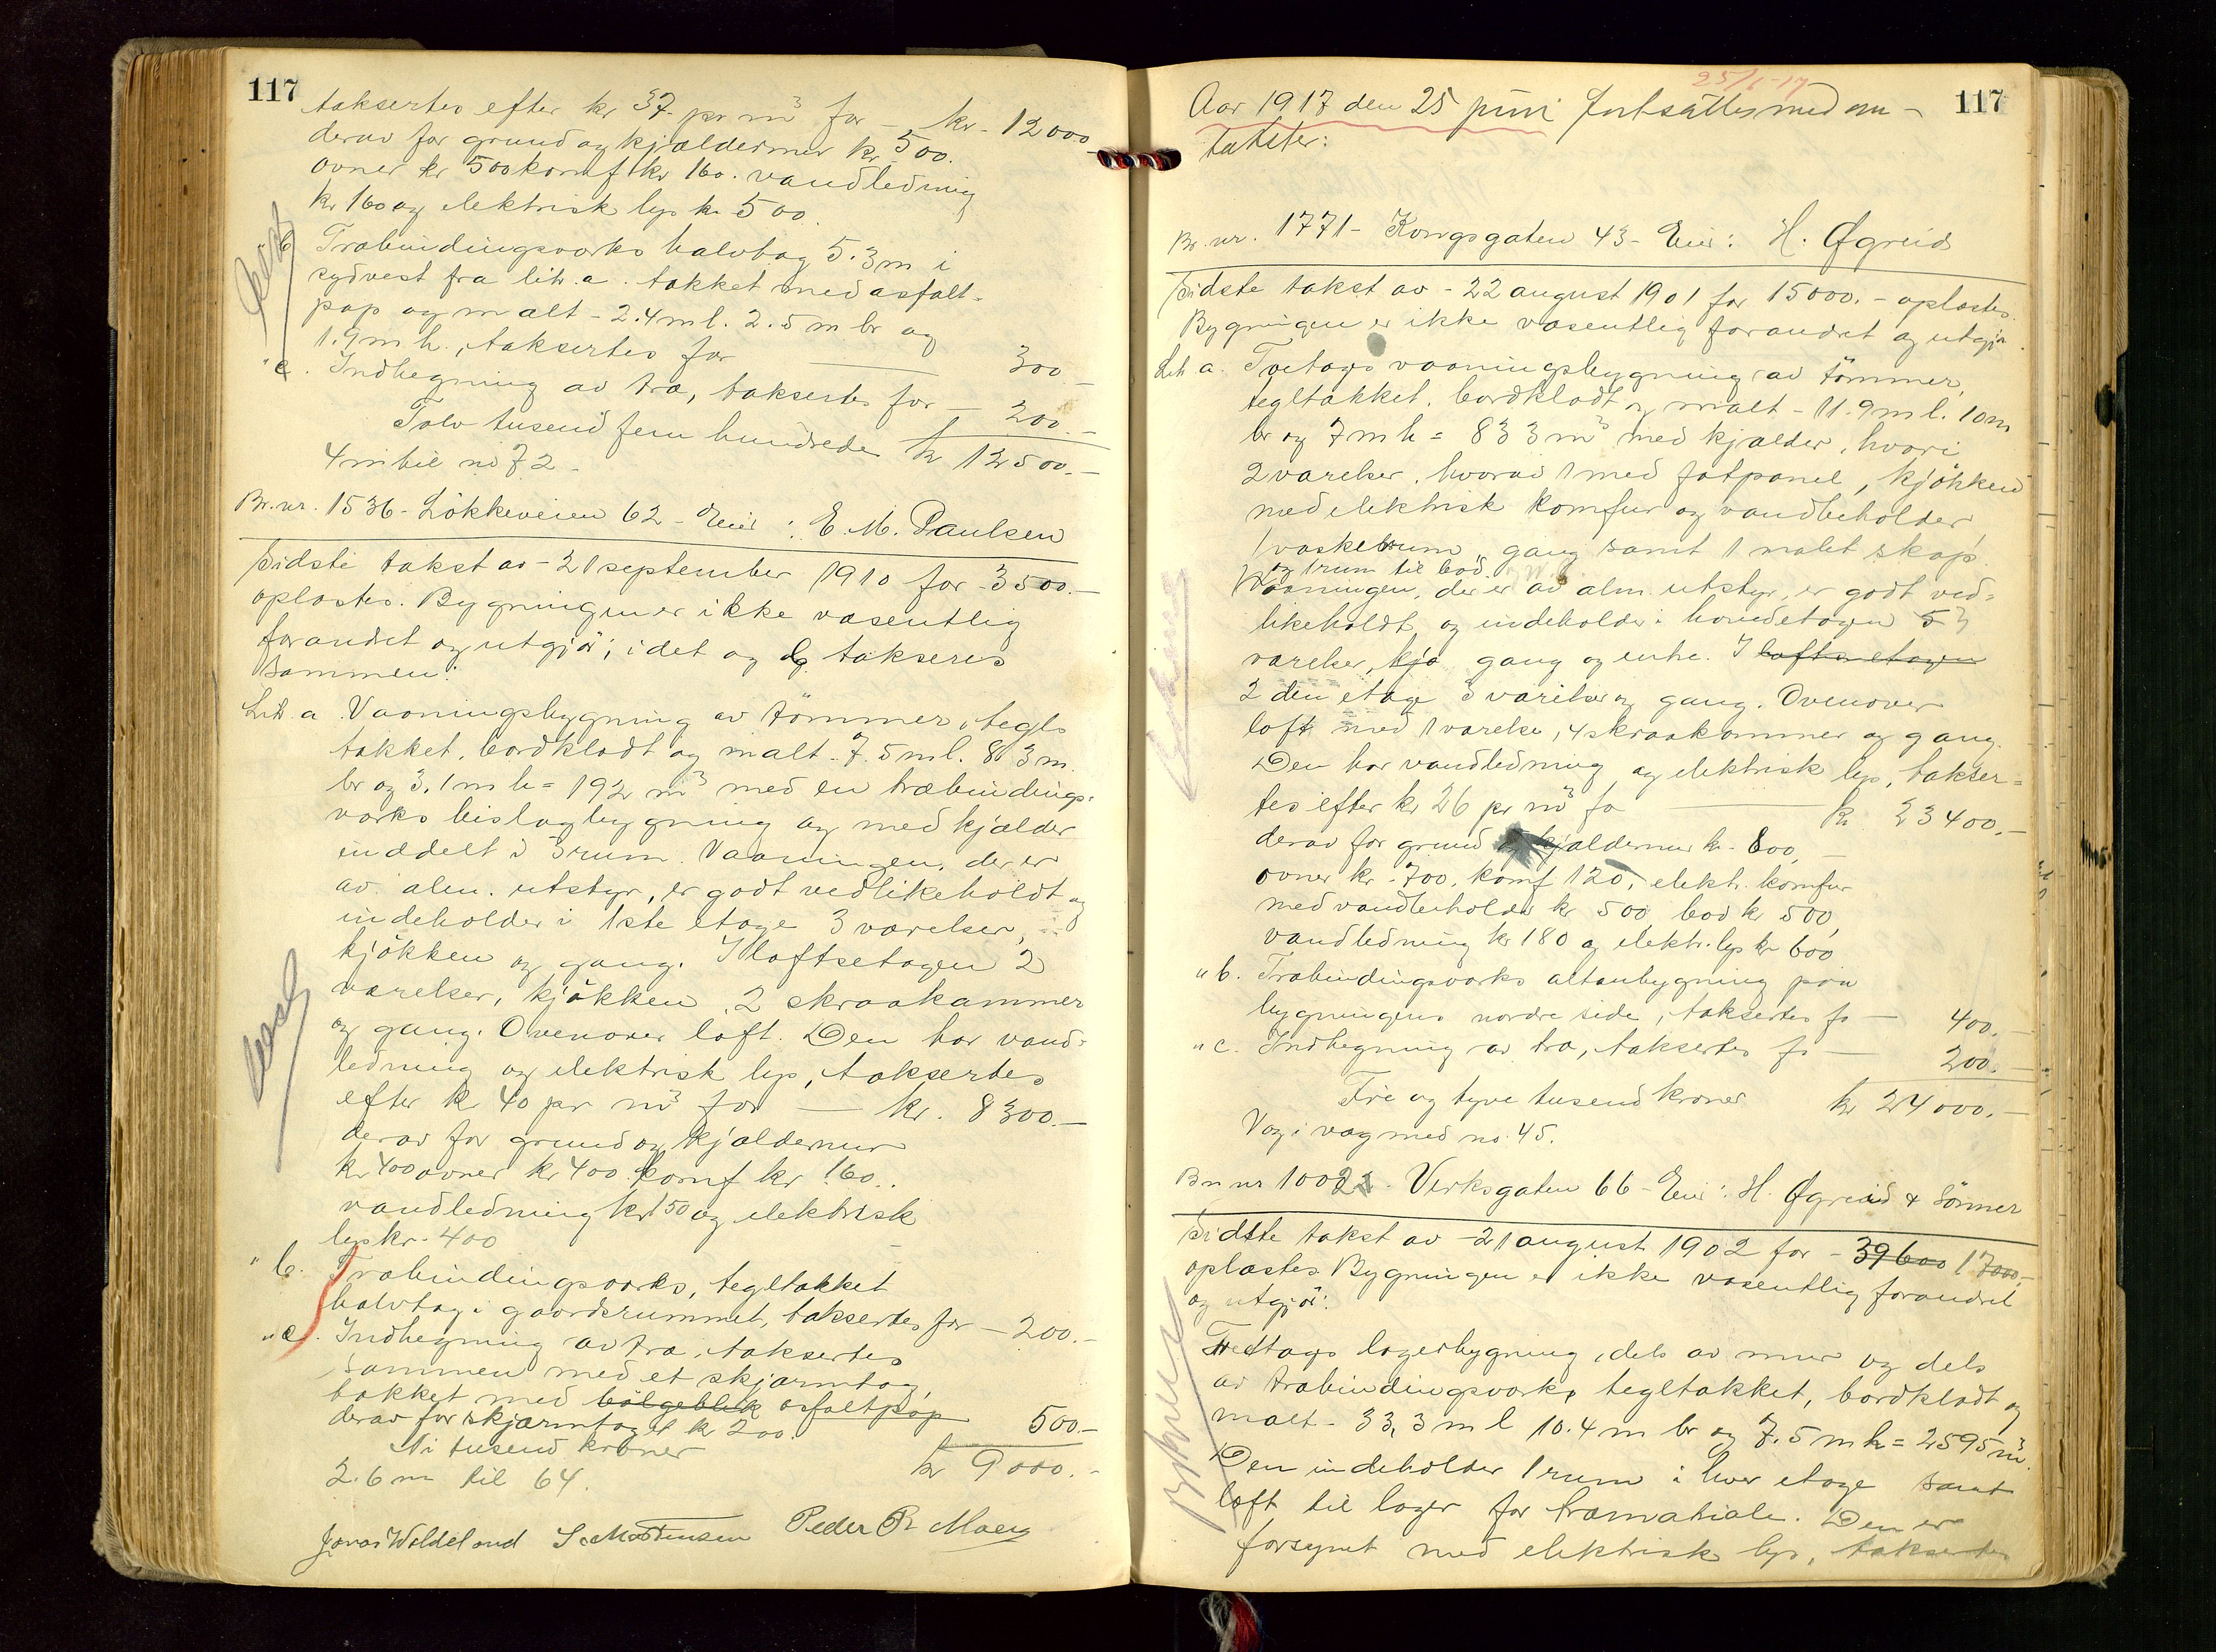 117
taksertes efter kr 37.- pr m³ for — kr. 12000.-
derav for grund og kjældermur kr 500.
ovner kr 500 komf kr 160. vandledning
kr 160 og elektrisk lys kr 500.
b. Træbindingsverks halvtag 5.3 m i
sydvest fra litr. a. tækket med asfalt-
pap og malt - 2.4 m l. 2.5 m br og
1.9 m h., taksertes for — 300.-
"c. Indhegning av træ, taksertes for — 200.-
Tolv tusend fem hundrede kr 12500.-
4 m til no 72.
Br. nr. 1536 - Lökkeveien 62 - Eier: E. M. Paulsen
Sidste takst av - 21 september 1910 for 3500.-
oplæstes. Bygningen er ikke væsentlig
forandret og utgjör; idet a og b takseres
sammen:
Litr. a. Vaaningsbygning av tömmer, tegl-
tækket, bordklædt og malt - 7.5 m l. 8.3 m
br og 3.1 m h = 192 m³ med en træbindings-
verks bislagbygning og med kjælder
inddelt i 3 rum. Vaaningen, der er
av alm. utstyr, er godt vedlikeholdt og
indeholder i 1ste etage 3 værelser,
kjökken og gang. I loftsetagen 2
værelser, kjökken, 2 skraakammer
og gang. Ovenover loft. Den har vand-
ledning og elektrisk lys, taksertes
efter kr 40 pr m³ for — kr. 8300.-
derav for grund og kjældermur
kr 400 ovner kr 400. komf kr 160..
vandledning kr 150 og elektrisk
lys kr. 400
"b. Træbindingsverks, tegltækket
halvtag i gaardsrummet, taksertes for — 200.-
"c. Indhegning av træ, taksertes
sammen med et skjærmtag,
tækket med bölgeblik asfaltpap
derav for skjærmtaget kr 200. 500.-
Ni tusend kroner kr 9000.-
2.6 m til 64.
Jonas Weldeland S. Mortensen Peder R. Moeng
25/6-17
117
Aar 1917 den 25 juni fortsættes med om-
takster:
Br. nr. 1771 - Kongsgaten 43 - Eier: H. Øgreid
Sidste takst av - 22 august 1901 for 15000.- oplæstes.
Bygningen er ikke væsentlig forandret og utgjör.
Litr. a. Toetages vaaningsbygning av tömmer,
tegltækket, bordklædt og malt - 11.9 m l. 10 m
br og 7 m h = 833 m³ med kjælder, hvori
2 værelser, hvorav 1 med fotpanel, kjökken
med elektrisk komfur og vandbeholder
1 vaskerum, gang samt 1 malet skap
og 1 rum til bad
Vaaningen, der er av alm utstyr, er godt ved-
likeholdt og indeholder i hovedetagen 5
værelser, kjö. gang og entre. I loftsetagen
2den etage 5 værelser og gang. Ovenover
loft med 1 værelse, 4 skraakammer og gang.
Den har vandledning og elektrisk lys, takser-
tes efter kr 26 pr m³ for — kr. 23400.-
derav for grund og kjældermur kr. 800,
ovner kr. 700. komf 120, elektr. komfur
med vandbeholder kr 500 bad kr 500,
vandledning kr 180 og elektr. lys kr 600
"b. Træbindingsverks altanbygning paa
bygningens nordre side, taksertes for — 400.-
"c. Indhegning av træ, taksertes for — 200.-
Fire og tyve tusend kroner kr 24000.-
Væg i væg med no. 45.
Br nr 1002. Verksgaten 66 - Eier: H. Øgreid & Sönner
Sidste takst av - 21 august 1902 for - 39600 17000.-
oplæstes. Bygningen er ikke væsentlig forandret
og utgjör:
Treetages lagerbygning, dels av mur og dels
av træbindingsverk, tegltækket, bordklædt og
malt - 33,3 m l 10.4 m br og 7.5 m h = 2595 m³.
Den indeholder 1 rum i hver etage samt
loft til lager for træmatriale. Den er
forsynet med elektrisk lys, taksertes